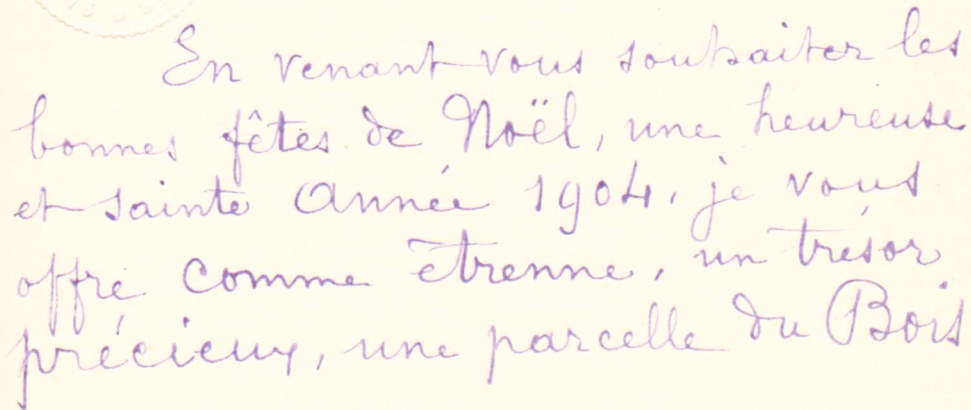 En venant vous souhaiter les
bonnes fêtes de Noël, une heureuse
et sainte Année 1904, je vous
offre comme étrenne, un trésor
précieux, une parcelle du Bois